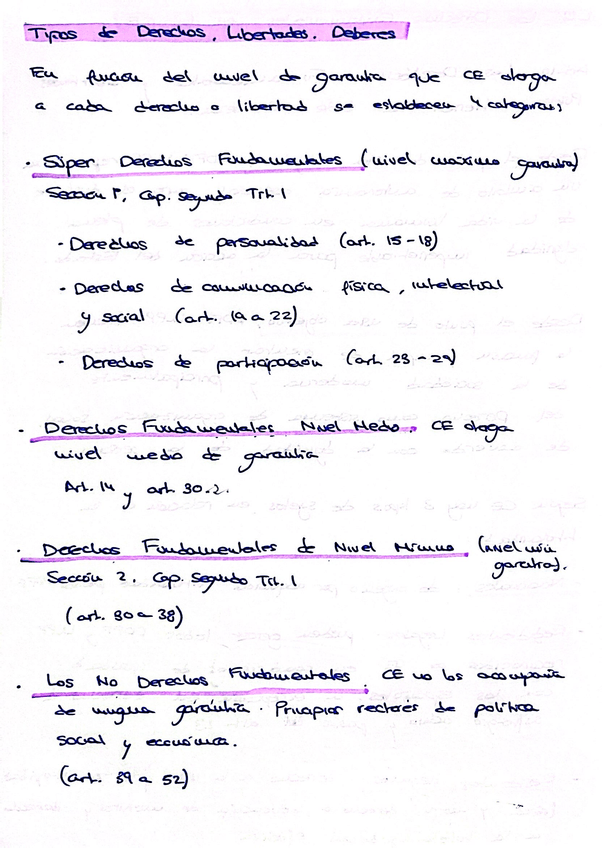 Tipos de Derechos, Libertades. Deberes
En función del nivel de garantía que CE otorga
a cada derecho o libertad se establecen 4 categorías;
· Súper Derechos Fundamentales (nivel máximo garantía)
Sección 1ª, Cap. Segundo Tit. I
- Derechos de personalidad (art. 15-18)
- Derechos de comunicación física, intelectual
y social (art. 19 a 22)
- Derechos de participación (art. 23-29)
· Derechos Fundamentales Nivel Medio. CE otorga
nivel medio de garantía
Art. 14 y art. 30.2.
· Derechos Fundamentales de Nivel Mínimo (nivel mín
garantía).
Sección 2. Cap. Segundo Tit. I
(art. 30 a 38)
· Los No Derechos Fundamentales. CE no los acompaña
de ninguna garantía. Principios rectores de política
social y económica.
(art. 39 a 52)